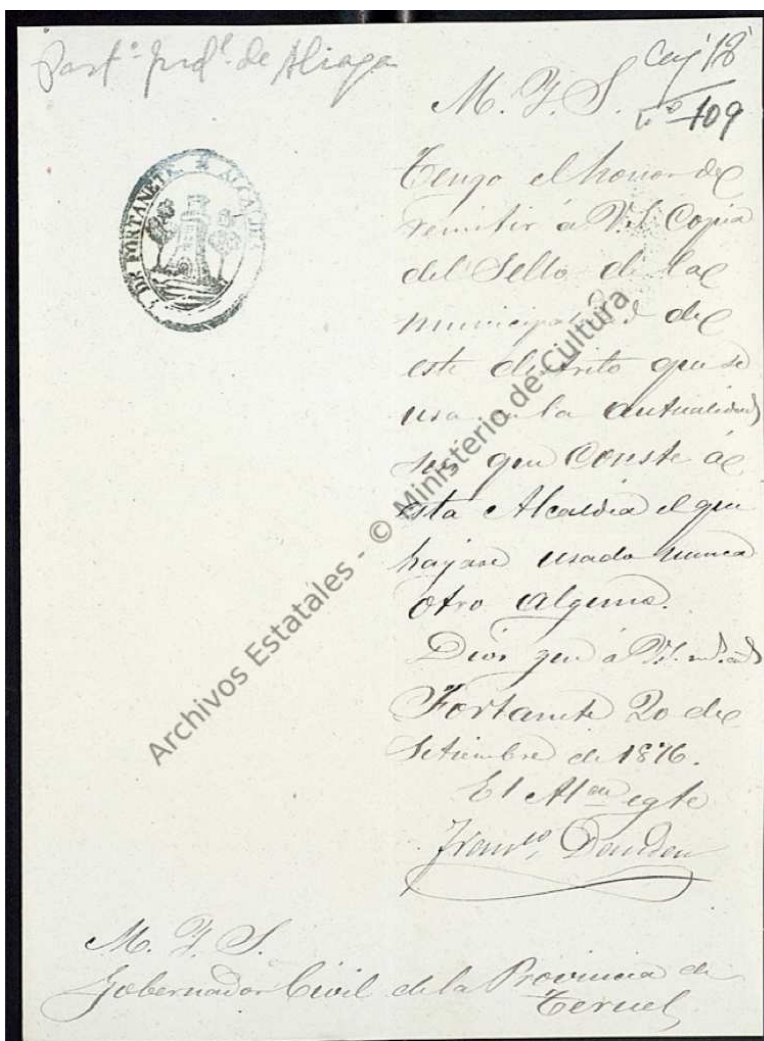 Part.º jud.l de Aliaga
Caj 18
M. Y. S.
nº 109
ALCALDIA DE FORTANETE
Tengo el honor de
remitir á V.S. Copia
del Sello de la
municipalidad de
este distrito que se
usa en la actualidad
sin que Conste á
esta Alcaldia el que
hayase usado nunca
otro alguno.
Dios gue á V.S. m.s a.s
Fortanete 20 de
Setiembre de 1876.
El Al.de
Fran.co Daudén
M. Y. S.
Gobernador Civil de la Provincia de
Teruel
Archivos Estatales - © Ministerio de Cultura